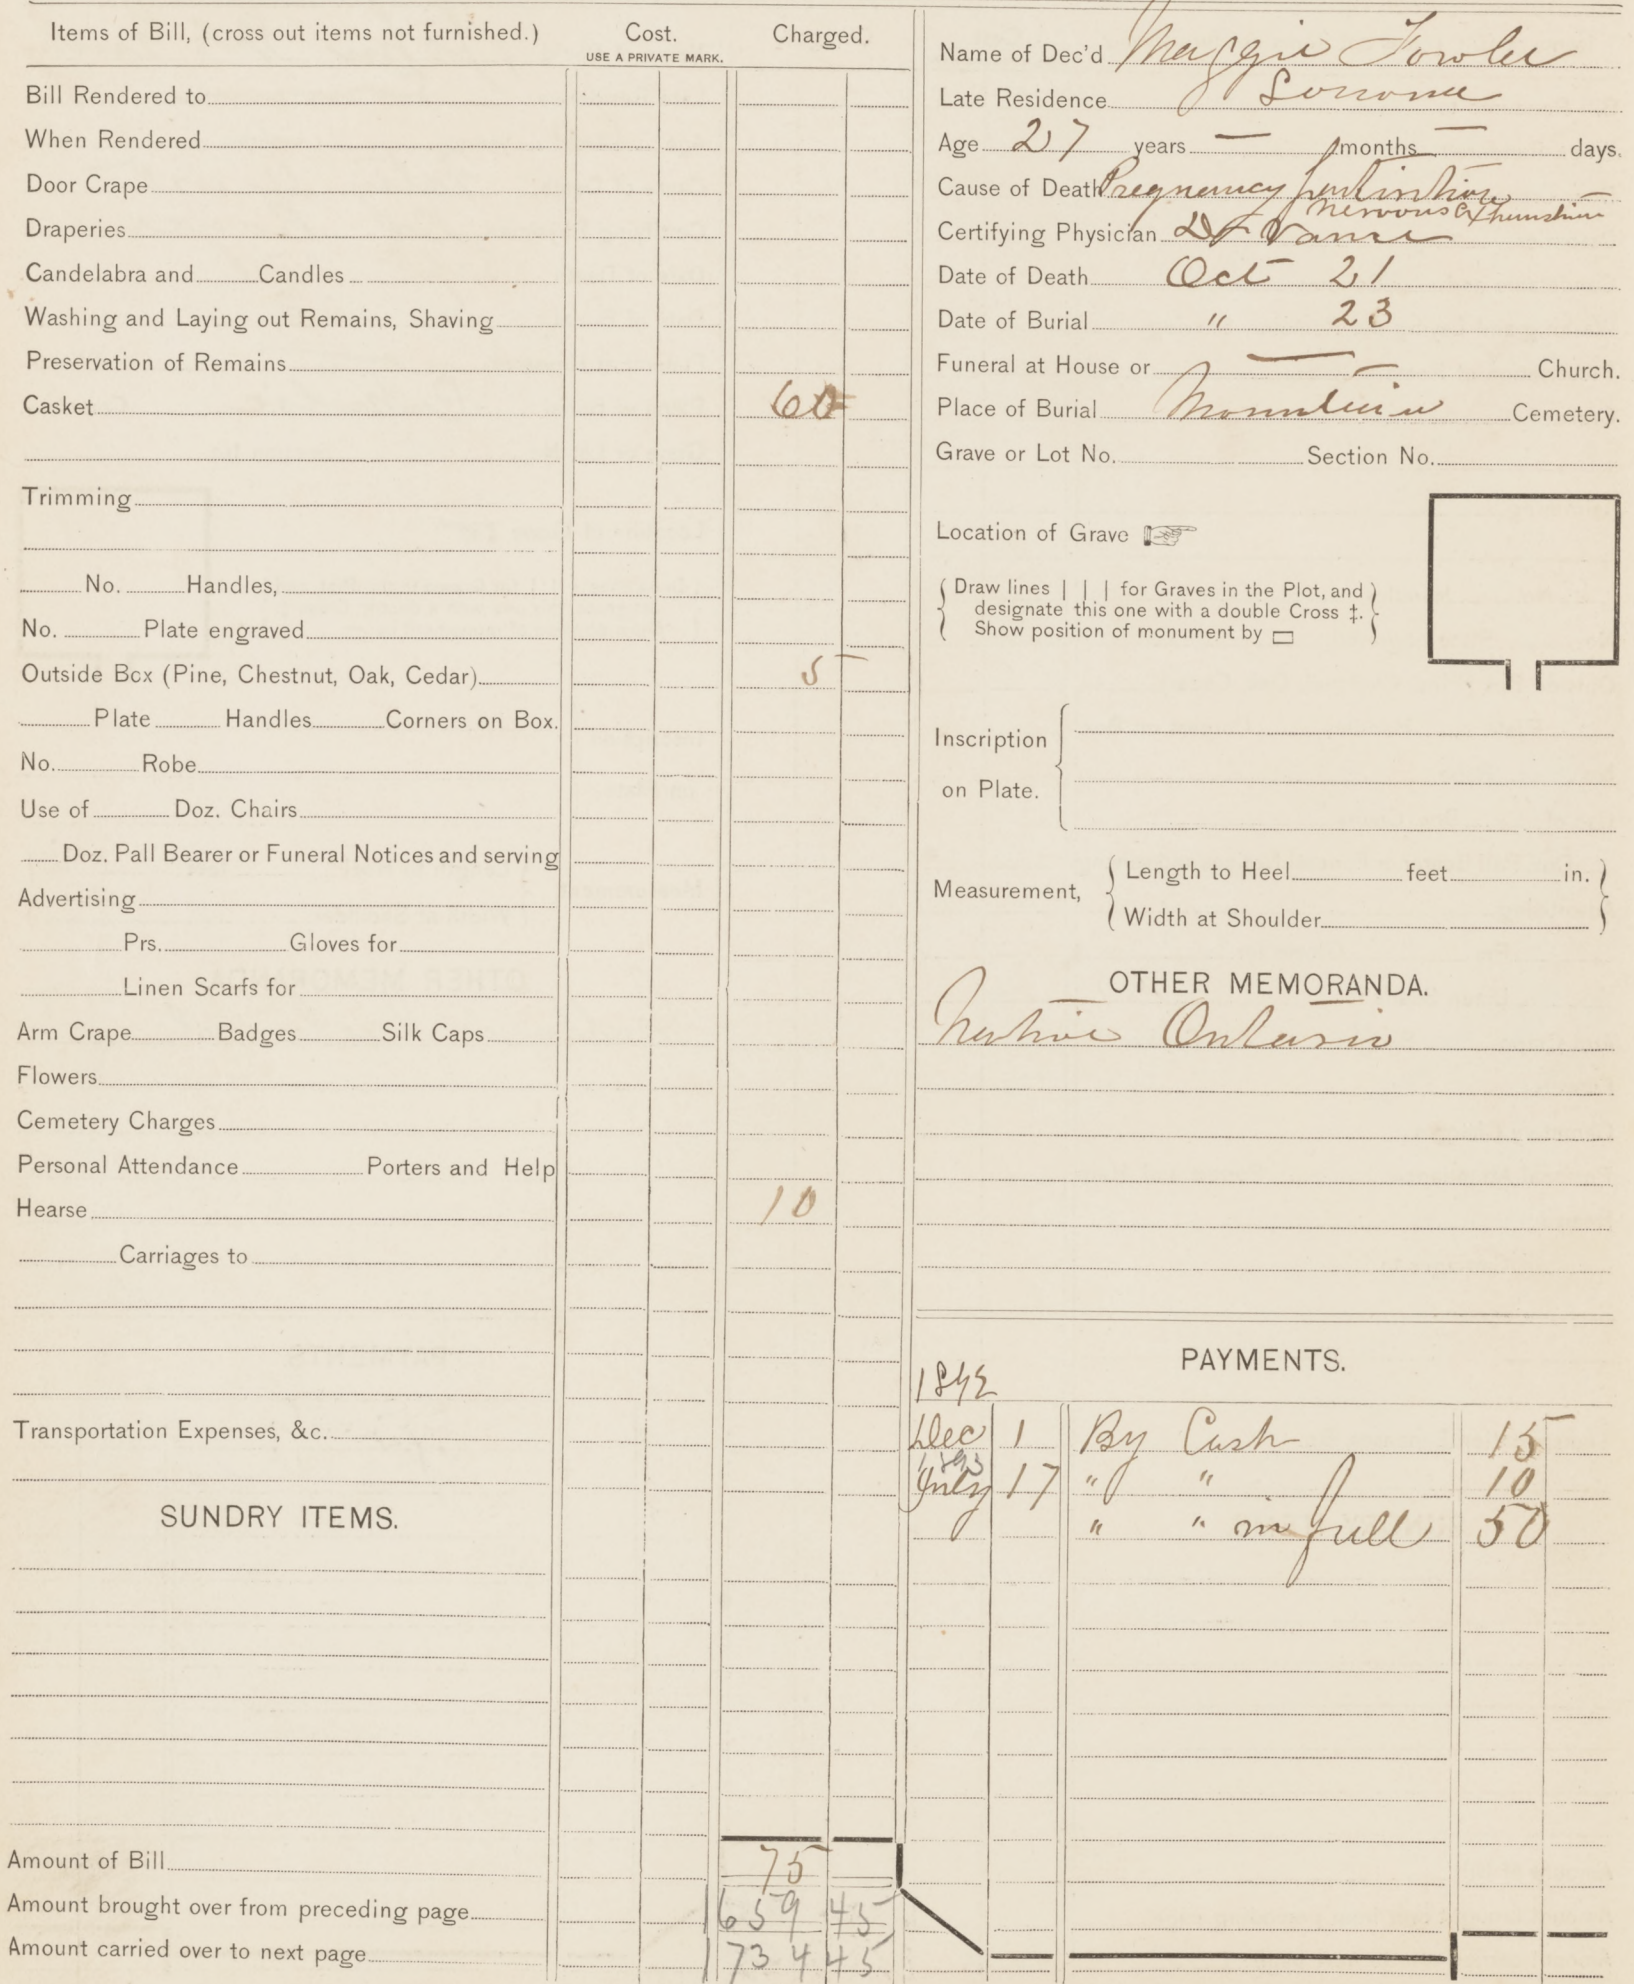 Items of Bill, (cross out items not furnished.) Cost. Charged.
USE A PRIVATE MARK.
Bill Rendered to
When Rendered
Door Crape
Draperies
Candelabra and Candles
Washing and Laying out Remains, Shaving
Preservation of Remains
Casket 60
Trimming
No. Handles,
No. Plate engraved
Outside Box (Pine, Chestnut, Oak, Cedar) 5
Plate Handles Corners on Box.
No. Robe
Use of Doz. Chairs
Doz. Pall Bearer or Funeral Notices and serving
Advertising
Prs. Gloves for
Linen Scarfs for
Arm Crape Badges Silk Caps
Flowers
Cemetery Charges
Personal Attendance Porters and Help
Hearse 10
Carriages to
Transportation Expenses, &c.
SUNDRY ITEMS.
Amount of Bill 75
Amount brought over from preceding page 1659 45
Amount carried over to next page 1734 45
Name of Dec'd Maggie Fowler
Late Residence Sonoma
Age 27 years — months — days.
Cause of Death Pregnancy
nervous exhaustion
Certifying Physician Dr Vance
Date of Death Oct 21
Date of Burial " 23
Funeral at House or — Church.
Place of Burial Mountain Cemetery.
Grave or Lot No. Section No.
Location of Grave
Draw lines | | | for Graves in the Plot, and
designate this one with a double Cross ‡.
Show position of monument by
Inscription
on Plate.
Measurement,
Length to Heel feet in.
Width at Shoulder
OTHER MEMORANDA.
Native Ontario
PAYMENTS.
1892
Dec 1 By Cash 15
1893
July 17 " " 10
" " in full 50